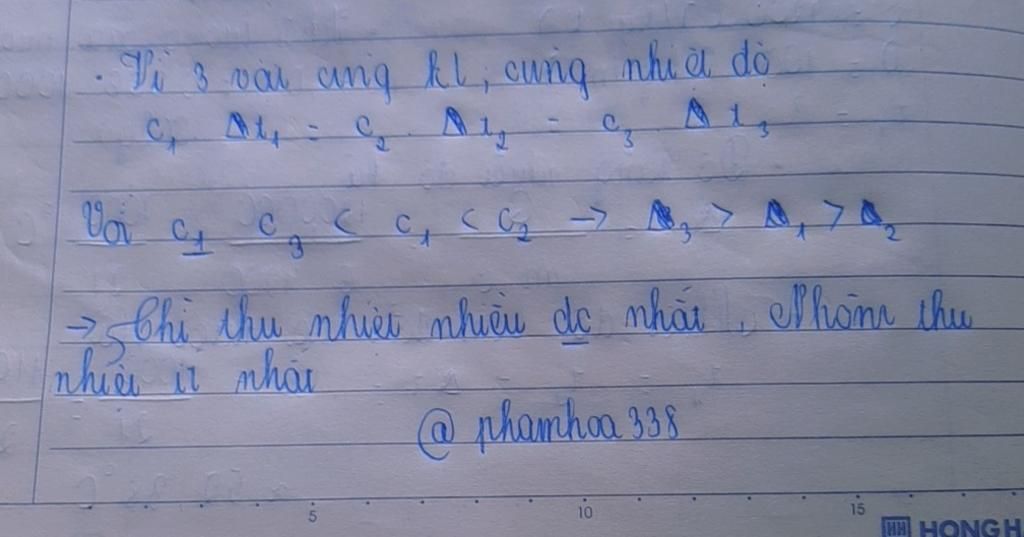 . Vì 3 vật cùng kl, cùng nhiệt độ
c₁ Δt₁ = c₂ . Δt₂ = c₃ Δt₃
Với c₁ c₃ < c₁ < c₂ → Δ₃ > Δ₁ > Δ₂
→ Chì thu nhiệt nhiều dc nhất, Nhôm thu
nhiệt ít nhất
@ phamhoa338
5 10 15
HONG H